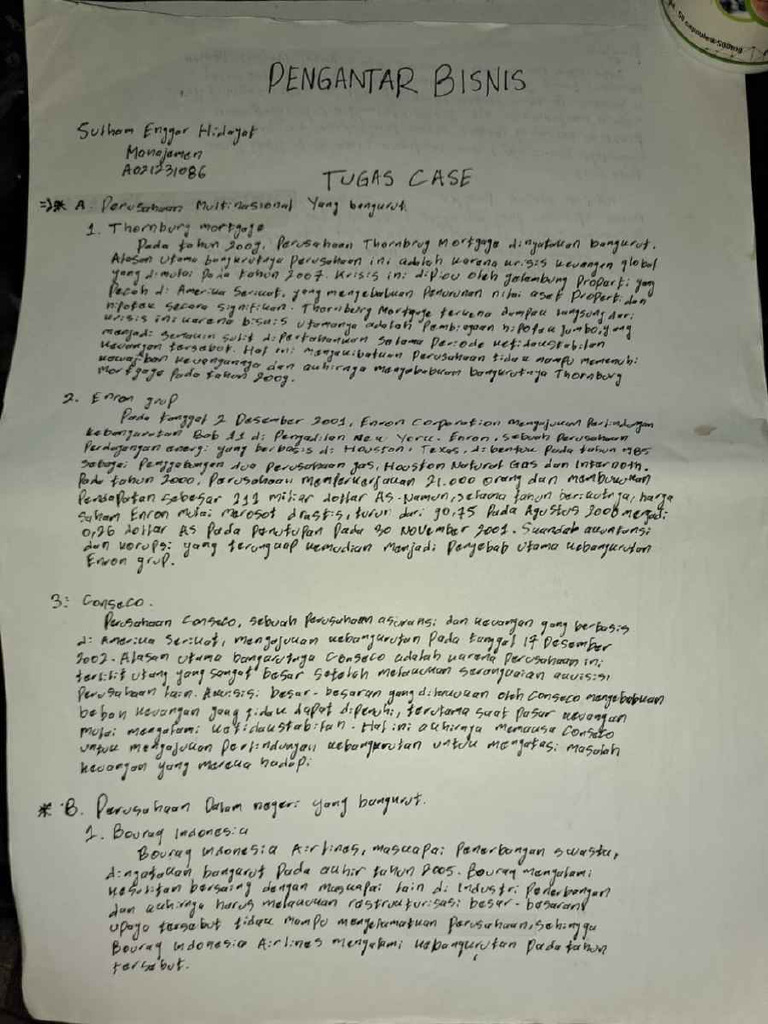 50 capsules/500mg
PENGANTAR BISNIS
Sulham Enggar Hidayat
Manajemen
A021231086
TUGAS CASE
=>* A. Perusahaan Multinasional Yang bangkrut
1. Thornburg mortgage
Pada tahun 2009, Perusahaan Thornbrug Mortgage dinyatakan bangkrut.
Alasan utama bangkrutnya Perusahaan ini adalah karena krisis keuangan global
yang dimulai Pada tahun 2007. Krisis ini dipicu oleh gelembung Properti yang
Pecah di Amerika Serikat, yang mengebabkan Penurunan nilai aset Properti dan
hipotek secara signifikan. Thornburg Mortgage terkena dampak langsung dari
krisis ini karena bisnis utamanya adalah Pembiayaan hipotek jumbo, yang
menjadi semakin sulit dipertahankan Selama Periode ketidakstabilan
keuangan tersebut. Hal ini mengakibatkan Perusahaan tidak mampu memenuhi
kewajiban keuangannya dan akhirnya mengebabkan bangkrutnya Thornburg
Mortgage Pada tahun 2009.
2. Enron grup
Pada tanggal 2 Desember 2001, Enron Corporation mengajukan Perlindungan
kebangkrutan Bab 11 di Pengadilan New York. Enron, sebuah Perusahaan
Perdagangan energi yang berbasis di Houston, Texas, dibentuk Pada tahun 1985
Sebagai Penggabungan dua Perusahaan gas, Houston Natural Gas dan Internorth.
Pada tahun 2000, Perusahaan memperkerjakan 21.000 orang dan membukukan
Pendapatan sebesar 111 miliar dollar AS. Namun, selama tahun berikutnya, harga
saham Enron mulai merosot drastis, turun dari 90,75 Pada Agustus 2000 menjadi
0,26 dollar AS Pada Penutupan Pada 30 November 2001. Skandal akuntansi
dan korupsi yang terungkap kemudian Menjadi Penyebab utama kebangkrutan
Enron grup.
3. Conseco.
Perusahaan Conseco, sebuah Perusahaan asuransi dan keuangan yang berbasis
di Amerika Serikat, mengajukan kebangkrutan Pada tanggal 17 Desember
2002. Alasan utama bangkrutnya Conseco adalah karena Perusahaan ini
terlilit utang yang sangat besar setelah melakukan serangkaian akuisisi
Perusahaan lain. Akuisisi besar-besaran yang dilakukan oleh Conseco mengebabkan
beban keuangan yang tidak dapat dipenuhi, terutama saat Pasar keuangan
mulai mengalami ketidakstabilan. Hal ini akhirnya memaksa Conseco
untuk mengajukan Perlindungan kebangkrutan untuk mengatasi masalah
keuangan yang mereka hadapi
* B. Perusahaan Dalam negeri yang bangkrut.
1. Bouraq Indonesia
Bouraq Indonesia Airlines, maskapai Penerbangan swasta,
dinyatakan bangkrut Pada akhir tahun 2005. Bouraq mengalami
kesulitan bersaing dengan maskapai lain di Industri Penerbangan
dan akhirnya harus melakukan restrukturisasi besar-besaran
upaya tersebut tidak mampu menyelamatkan Perusahaan, sehingga
Bouraq Indonesia Airlines mengalami kebangkrutan Pada tahun
tersebut.